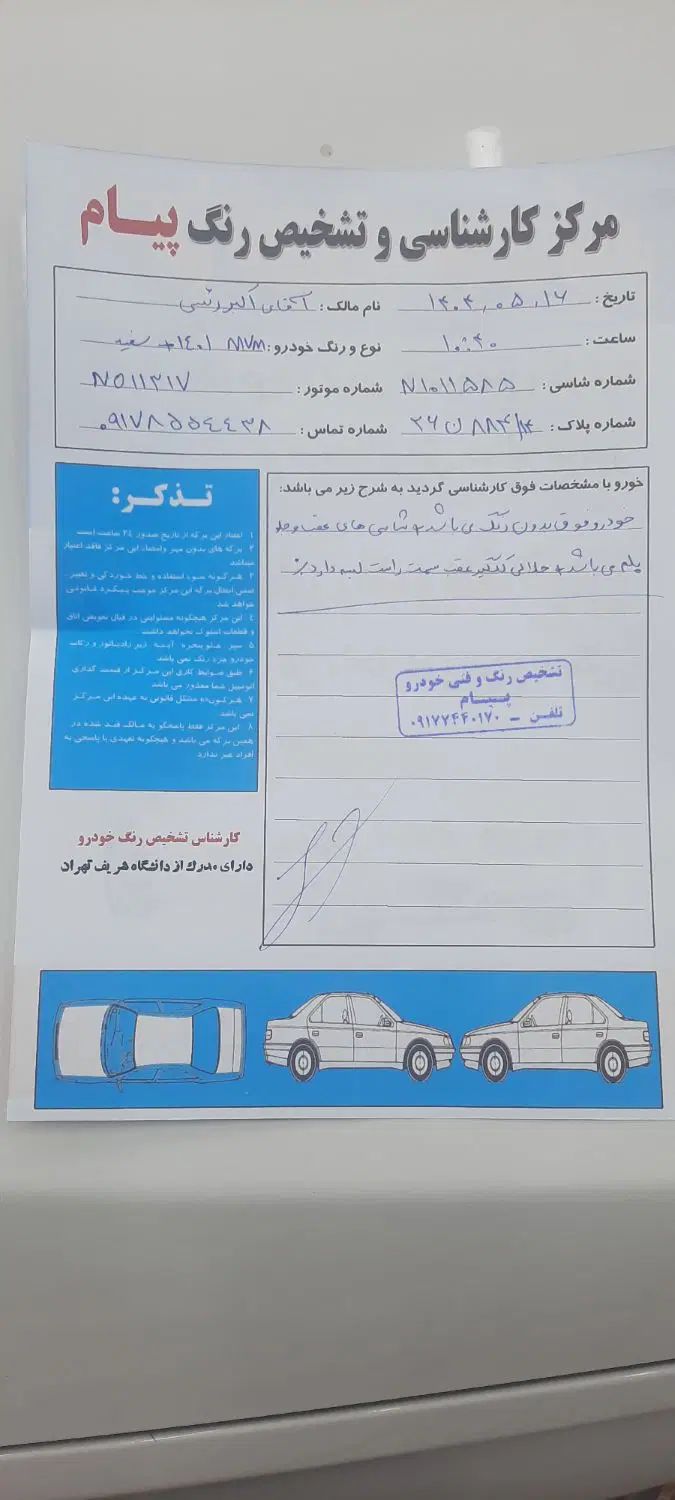 مرکز کارشناسی و تشخیص رنگ پیام
تاریخ: ۱۴۰۴,۰۵,۱۶
نام مالک: آقای اکبر
ساعت: ۱۰:۴۰
نوع و رنگ خودرو: MVM ۱۴۰۱ + سفید
شماره شاسی: N۱۰۱۱۵۸۵
شماره موتور: N۵۱۱۳۱۷
شماره پلاک: ۲۶ ن ۸۸۴/۱۴
شماره تماس: ۰۹۱۷۸۵۵۴۴۳۸
خورو با مشخصات فوق کارشناسی گردید به شرح زیر می باشد:
خودرو فوق بدون رنگ می باشد + شاسی های عقب و جلو
پلم می باشد + حلالی گلگیر عقب سمت راست لبه دارد
تشخیص رنگ و فنی خودرو
پیام
تلفن - ۰۹۱۷۷۴۴۰۱۷۰
تذکر:
۱ اعتبار این برگه از تاریخ صدور ۲٤ ساعت است
۲ برگه های بدون مهر و امضاء این مرکز فاقد اعتبار
میباشد
۳ هرگونه سوء استفاده و خط خوردگی و تغییر
برگه این مرکز موجب پیگرد قانونی
خواهد شد
٤ این مرکز هیچگونه مسئولیتی در قبال تعویض اتاق
و قطعات استوک نخواهد داشت
۵ سپر جلو پنجره آینه زیر رادیاتور و رکاب
خودرو جزء رنگ نمی باشد
۶ طبق ضوابط کاری این مرکز از قیمت گذاری
اتومبیل شما معذور می باشد
۷ هرگونه مشکل قانونی به عهده این مرکز
نمی باشد
۸ این مرکز فقط پاسخگو به مالک قید شده در
همین برگه می باشد و هیچگونه تعهدی یا پاسخی به
افراد غیر ندارد
کارشناس تشخیص رنگ خودرو
دارای مدرک از دانشگاه شریف تهران